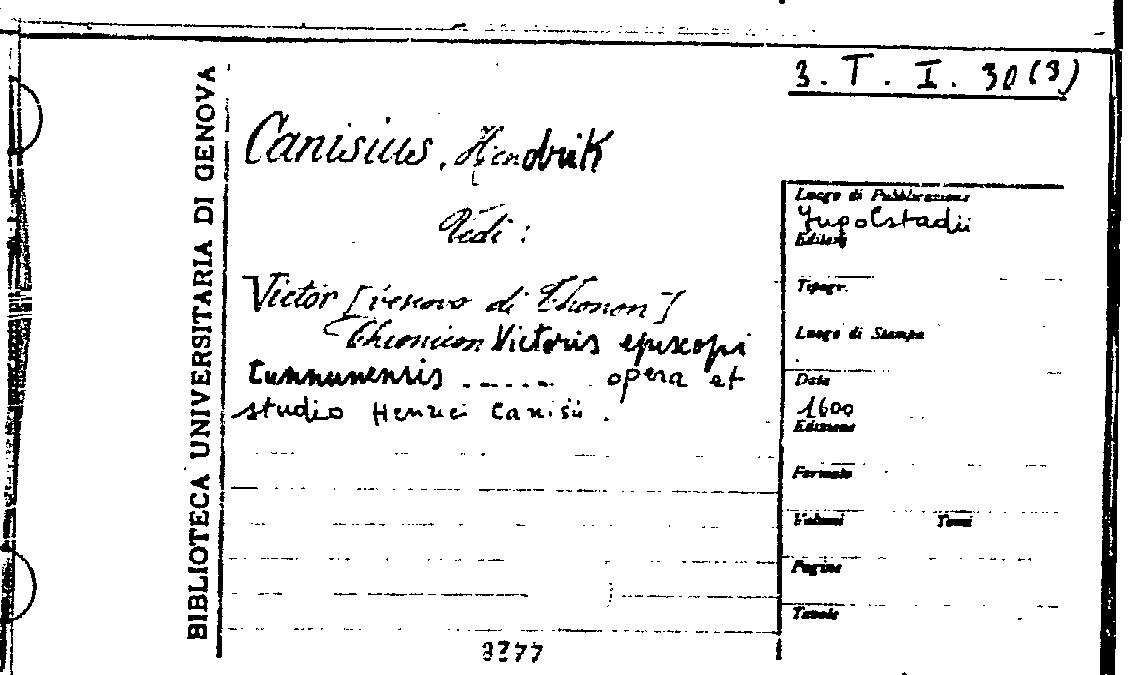 3. T. I. 30 (3)
BIBLIOTECA UNIVERSITARIA DI GENOVA
Canisius, Hendrik
Vedi:
Victor [vescovo di Thonon]
Chronicon Victoris episcopi
Tunnunensis ...... opera et
studio Henrici Canisii.
Luogo di Pubblicazione
Editore
Tipogr.
Luogo di Stampa
Data
1600
Edizione
Formato
Volumi Tomi
Pagine
Tavole